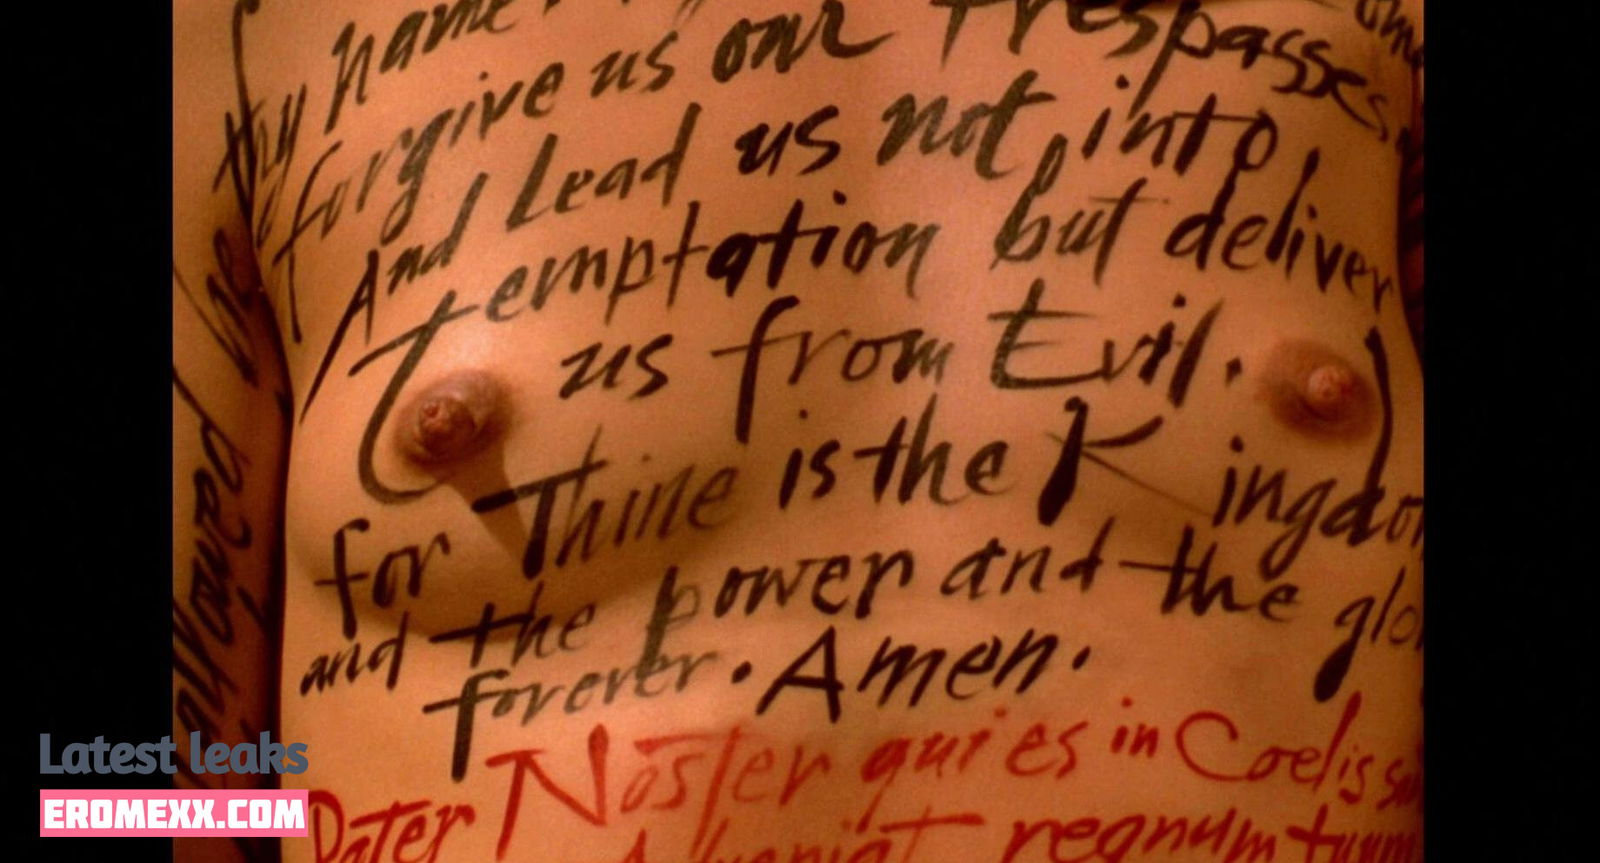 thy name
forgive us our Trespasses
And Lead us not into
Temptation but deliver
us from Evil.
for Thine is the Kingdom
and the power and the glo
forever. Amen.
Pater Noster qui es in Coelis
regnum tuum
Latest leaks
EROMEXX.COM